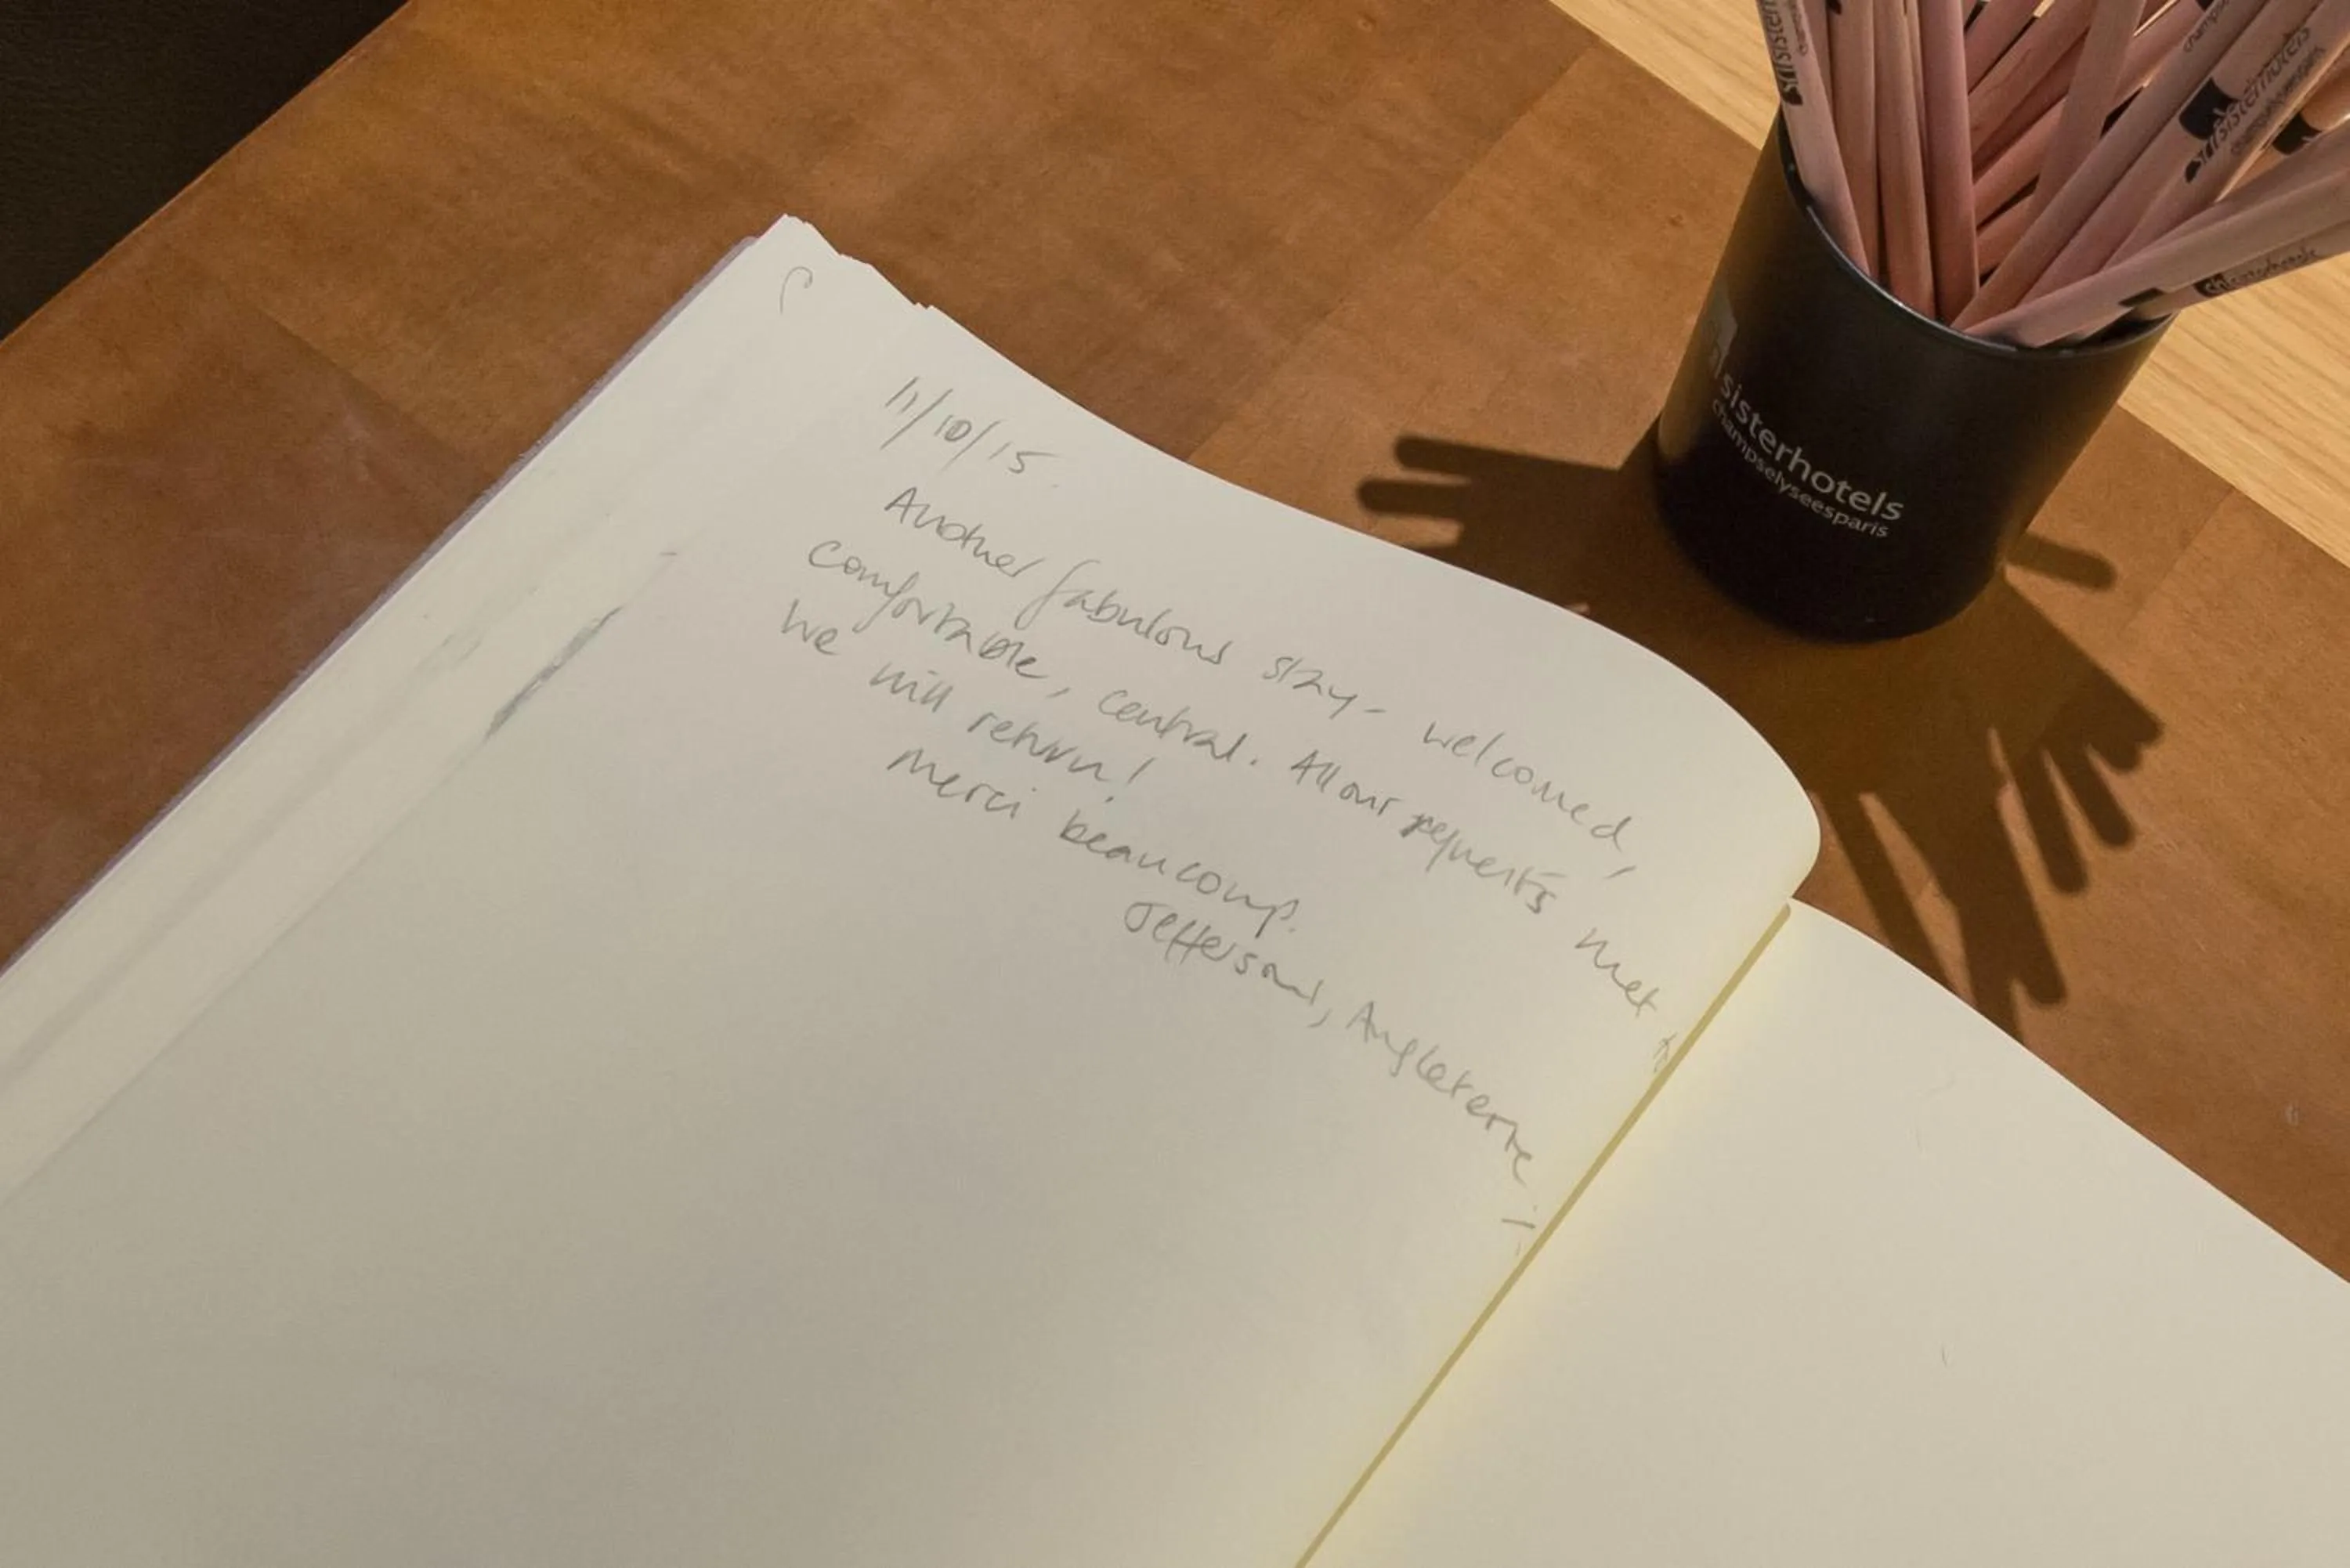 11/10/15.
Another fabulous stay - welcomed,
comfortable, central. All our requests met
We will return!
Merci beaucoup.
Jeffersons, Angleterre
sisterhotels
champselyseesparis
sisterhotels